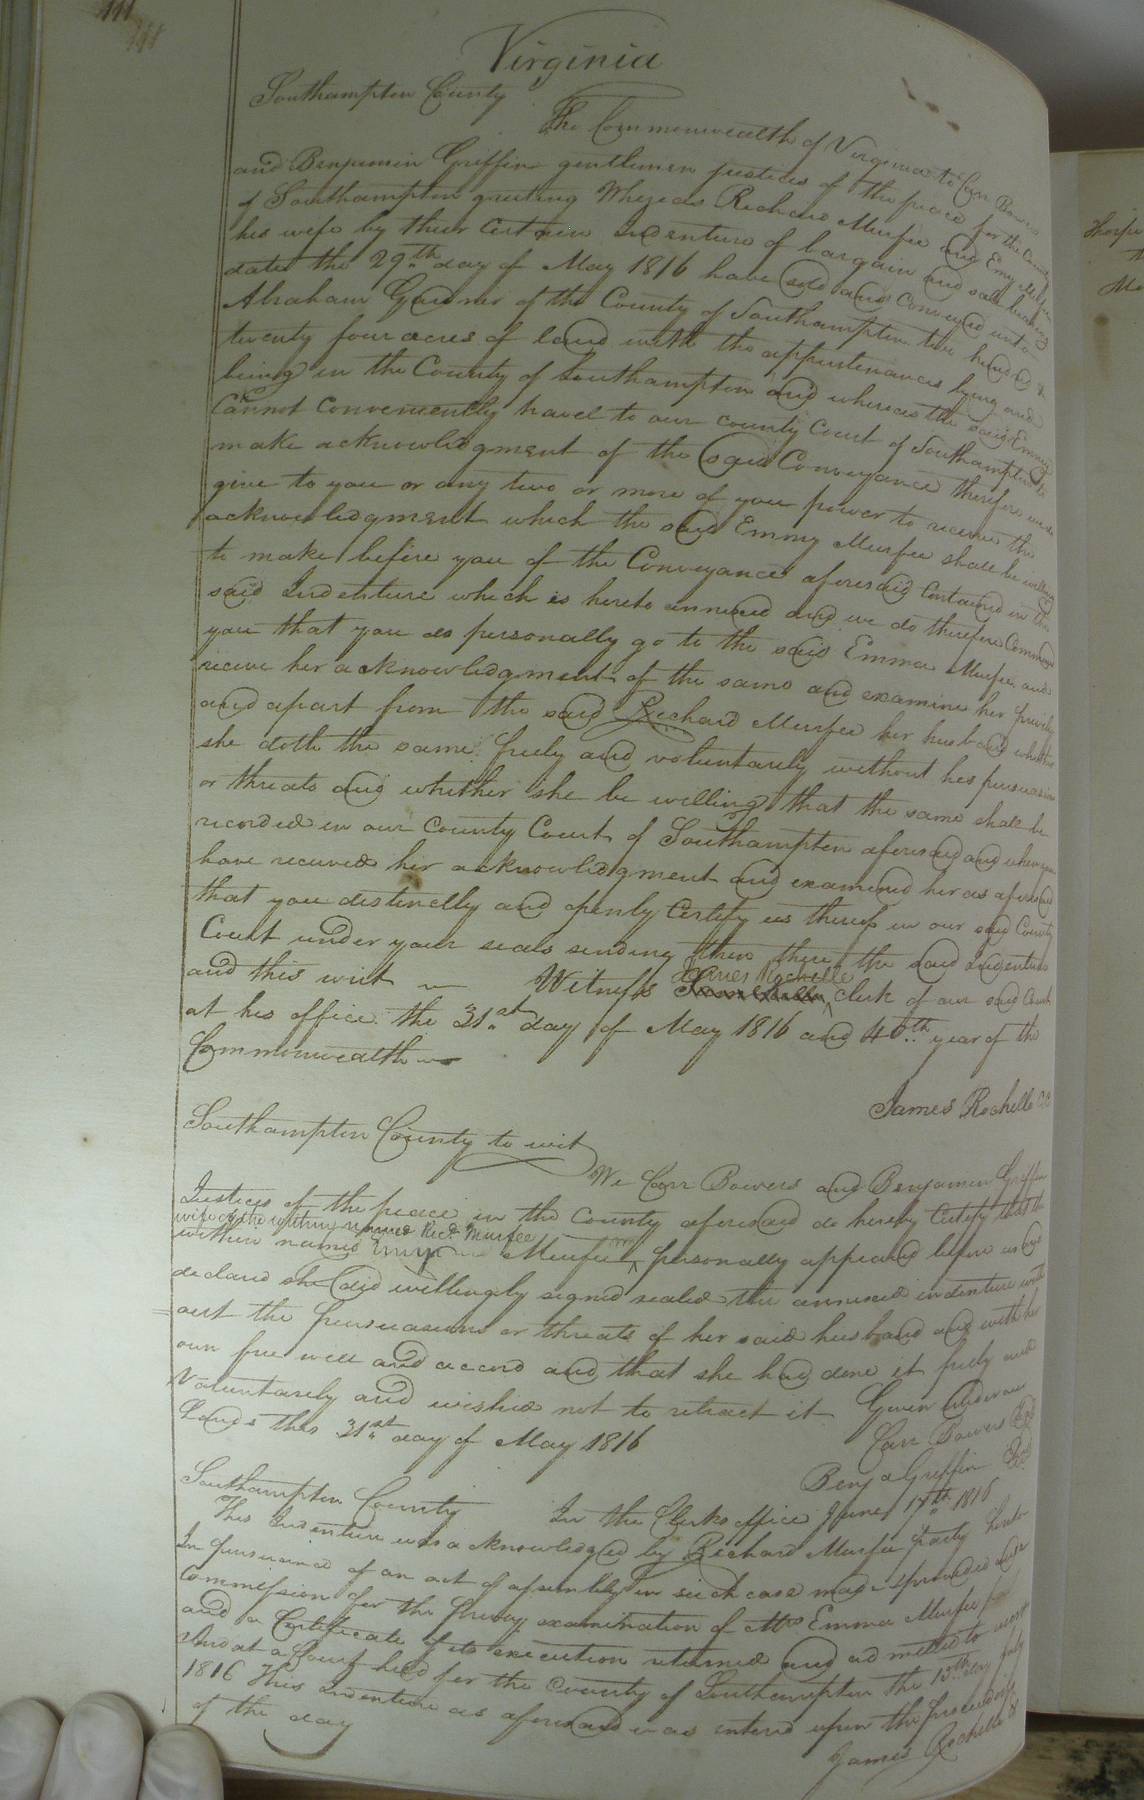 111
Virginia
Southampton County
The Commonwealth of Virginia to Carr Bowers
and Benjamin Griffin gentlemen justices of the peace for the County
of Southampton greeting Whereas Richard Murfee and Emy Murfee
his wife by their Certain Indenture of bargain and sale bearing
date the 29th day of May 1816 have sold and Conveyed unto
Abraham Gardner of the County of Southampton two hundred &
twenty four acres of land with the appurtenances lying and
being in the County of Southampton and whereas the said Emmy
Cannot Conveniently travel to our county Court of Southampton to
make acknowledgment of the said Conveyance therefore we do
give to you or any two or more of you power to receive the
acknowledgment which the said Emmy Murfee shall be willing
to make before you of the Conveyance aforesaid Contained in the
said Indenture which is hereto annexed and we do therefore Command
you that you do personally go to the said Emma Murfee and
receive her acknowledgment of the same and examine her privily
and apart from the said Richard Murfee her husband whether
she doth the same freely and voluntarily without his persuasion
or threats and whether she be willing that the same shall be
recorded in our County Court of Southampton aforesaid and when you
have received her acknowledgment and examined her as aforesaid
that you distinctly and openly Certify us thereof in our said County
Court under your seals sending then there the said Indenture
and this writ Witness James Rochelle clerk of our said Court
at his office the 31st day of May 1816 and 40th year of the
Commonwealth
James Rochelle CC
Southampton County to wit
We Carr Bowers and Benjamin Griffin
Justices of the peace in the County aforesaid do hereby Certify that the
wife of the within named Richd Murfee
within named Murfee personally appeared before us and
declared she did willingly signed sealed the annexed indenture with
out the persuasions or threats of her said husband and with her
own free will and accord and that she had done it freely and
voluntarily and wished not to retract it Given under our
hands this 31st day of May 1816
Carr Bowers
Benja Griffin
Southampton County In the Clerks office June 17th 1816
This Indenture was acknowledged by Richard Murfee party hereto
In pursuance of an act of assembly in such case made & provided and a
Commission for the privy examination of Mrs Emma Murfee
and a Certificate of its execution returned and admitted to record
And at a Court held for the County of Southampton the 15th day July
1816 This Indenture as aforesaid was entered upon the proceedings
of the day
James Rochelle
Thorpe